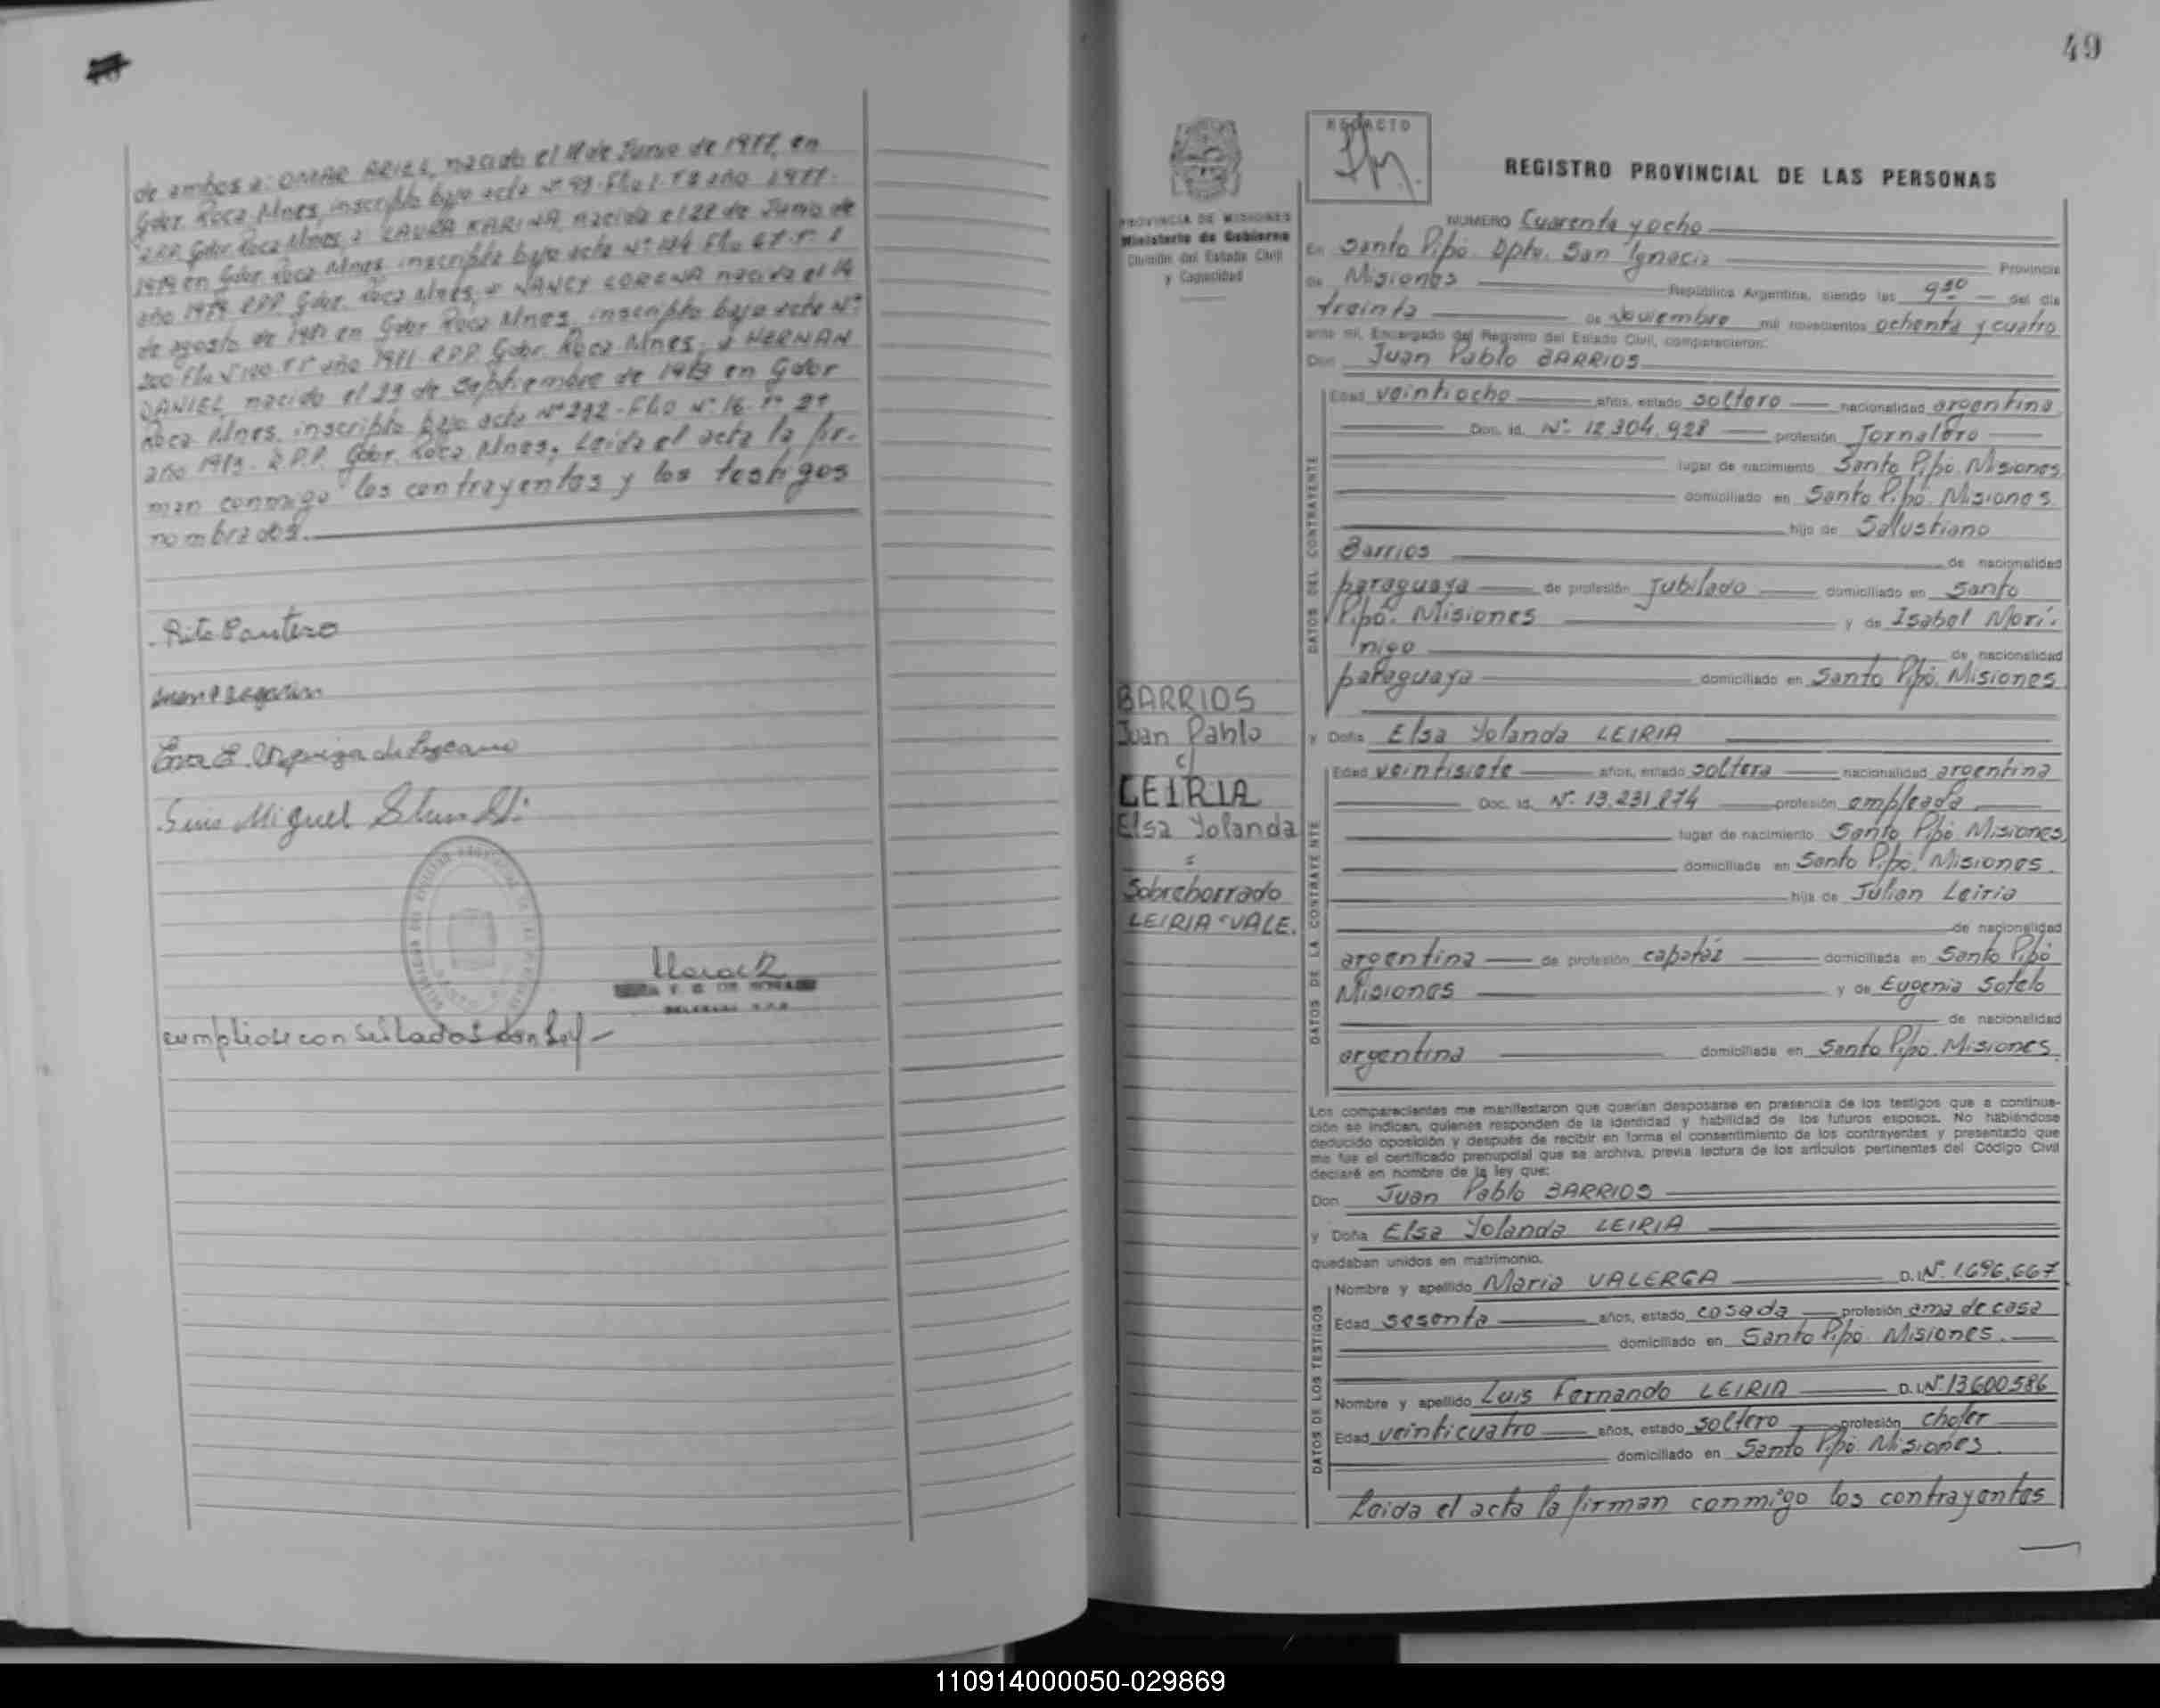 de ambos a: OMAR ARIEL, nacido el de Junio de 1977, en
Gdor. Roca Mnes, inscripto bajo acta Nº 99. Flio 1. Tº año 1977.
RPP. Gdor. Roca Mnes, a LAURA KARINA, nacida el 22 de Junio de
1979 en Gdor. Roca Mnes inscripta bajo acta Nº Flio 67. Tº 1
año 1979 RPP. Gdor. Roca Mnes, a NANCY LORENA nacida el 14
de agosto de 1981 en Gdor Roca Mnes, inscripta bajo acta Nº
200 Flio Nº 100 Tº año 1981 RPP. Gdor. Roca Mnes, y HERNAN
DANIEL, nacido el 29 de Septiembre de 1983 en Gdor
Roca Mnes, inscripto bajo acta Nº 292 - Flio Nº 16. Tº 2º
año 1983. R.P.P. Gdor. Roca Mnes, Leida el acta la fir-
man conmigo los contrayentes y los testigos
nombrados.
Rita Cantero
Eva E. Urquiza de Lezcano
Luis Miguel
cumpliose con sellados con Ley
49
REDACTO
REGISTRO PROVINCIAL DE LAS PERSONAS
PROVINCIA DE MISIONES
Ministerio de Gobierno
División del Estado Civil
y Capacidad
NUMERO Cuarenta y ocho
En Santo Pipó. Dpto. San Ignacio Provincia
de Misiones República Argentina, siendo las 9 30 del día
treinta de Noviembre mil novecientos ochenta y cuatro
ante mí, Encargado del Registro del Estado Civil, comparecieron:
Don Juan Pablo BARRIOS
DATOS DEL CONTRAYENTE
Edad veintiocho años, estado soltero nacionalidad argentina
Doc. Id. Nº 12.304.928 profesión Jornalero
lugar de nacimiento Santo Pipó, Misiones
domiciliado en Santo Pipó. Misiones.
hijo de Salustiano
Barrios de nacionalidad
paraguaya de profesión Jubilado domiciliado en Santo
Pipó. Misiones y de Isabel Morí-
nigo de nacionalidad
paraguaya domiciliado en Santo Pipó. Misiones
BARRIOS
Juan Pablo
c/
LEIRIA
Elsa Yolanda
=
Sobreborrado
LEIRIA-VALE.
y Doña Elsa Yolanda LEIRIA
DATOS DE LA CONTRAYENTE
Edad veintisiete años, estado soltera nacionalidad argentina
Doc. Id. Nº 13.231.874 profesión empleada
lugar de nacimiento Santo Pipó Misiones
domiciliada en Santo Pipó. Misiones.
hija de Julian Leiria
de nacionalidad
argentina de profesión capatáz domiciliada en Santo Pipó
Misiones y de Eugenia Sotelo
de nacionalidad
argentina domiciliada en Santo Pipó. Misiones.
Los comparecientes me manifestaron que querían desposarse en presencia de los testigos que a continua-
ción se indican, quienes responden de la identidad y habilidad de los futuros esposos. No habiéndose
deducido oposición y después de recibir en forma el consentimiento de los contrayentes y presentado que
me fue el certificado prenupcial que se archiva, previa lectura de los artículos pertinentes del Código Civil
declaré en nombre de la ley que:
Don Juan Pablo BARRIOS
y Doña Elsa Yolanda LEIRIA
quedaban unidos en matrimonio.
DATOS DE LOS TESTIGOS
Nombre y apellido Maria VALERGA D.I. Nº 1.696.667
Edad sesenta años, estado casada profesión ama de casa
domiciliado en Santo Pipó. Misiones.
Nombre y apellido Luis Fernando LEIRIA D.I. Nº 13600586
Edad veinticuatro años, estado soltero profesión chofer
domiciliado en Santo Pipó. Misiones.
Leida el acta la firman conmigo los contrayentes
110914000050-029869